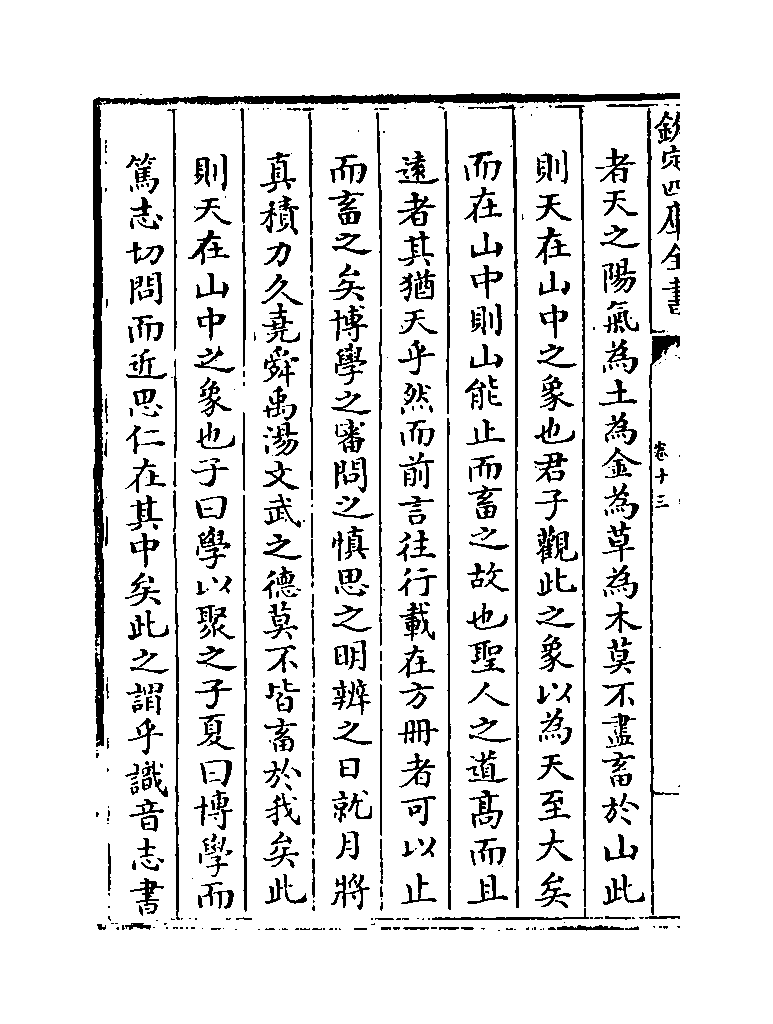 欽定四庫全書
卷十三
者天之陽氣為土為金為草為木莫不盡畜於山此
則天在山中之象也君子觀此之象以為天至大矣
而在山中則山能止而畜之故也聖人之道髙而且
遠者其猶天乎然而前言往行載在方冊者可以止
而畜之矣博學之審問之慎思之明辨之日就月將
真積力久堯舜禹湯文武之德莫不皆畜於我矣此
則天在山中之象也子曰學以聚之子夏曰博學而
篤志切問而近思仁在其中矣此之謂乎識音志書